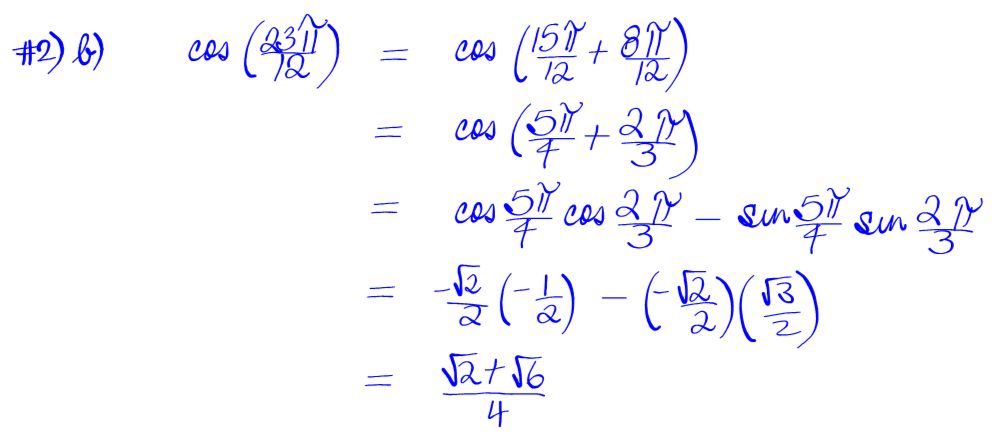 #2) b) cos (23π/12) = cos (15π/12 + 8π/12)
= cos (5π/4 + 2π/3)
= cos 5π/4 cos 2π/3 − sin 5π/4 sin 2π/3
= -√2/2 (-1/2) − (-√2/2)(√3/2)
= √2+√6/4